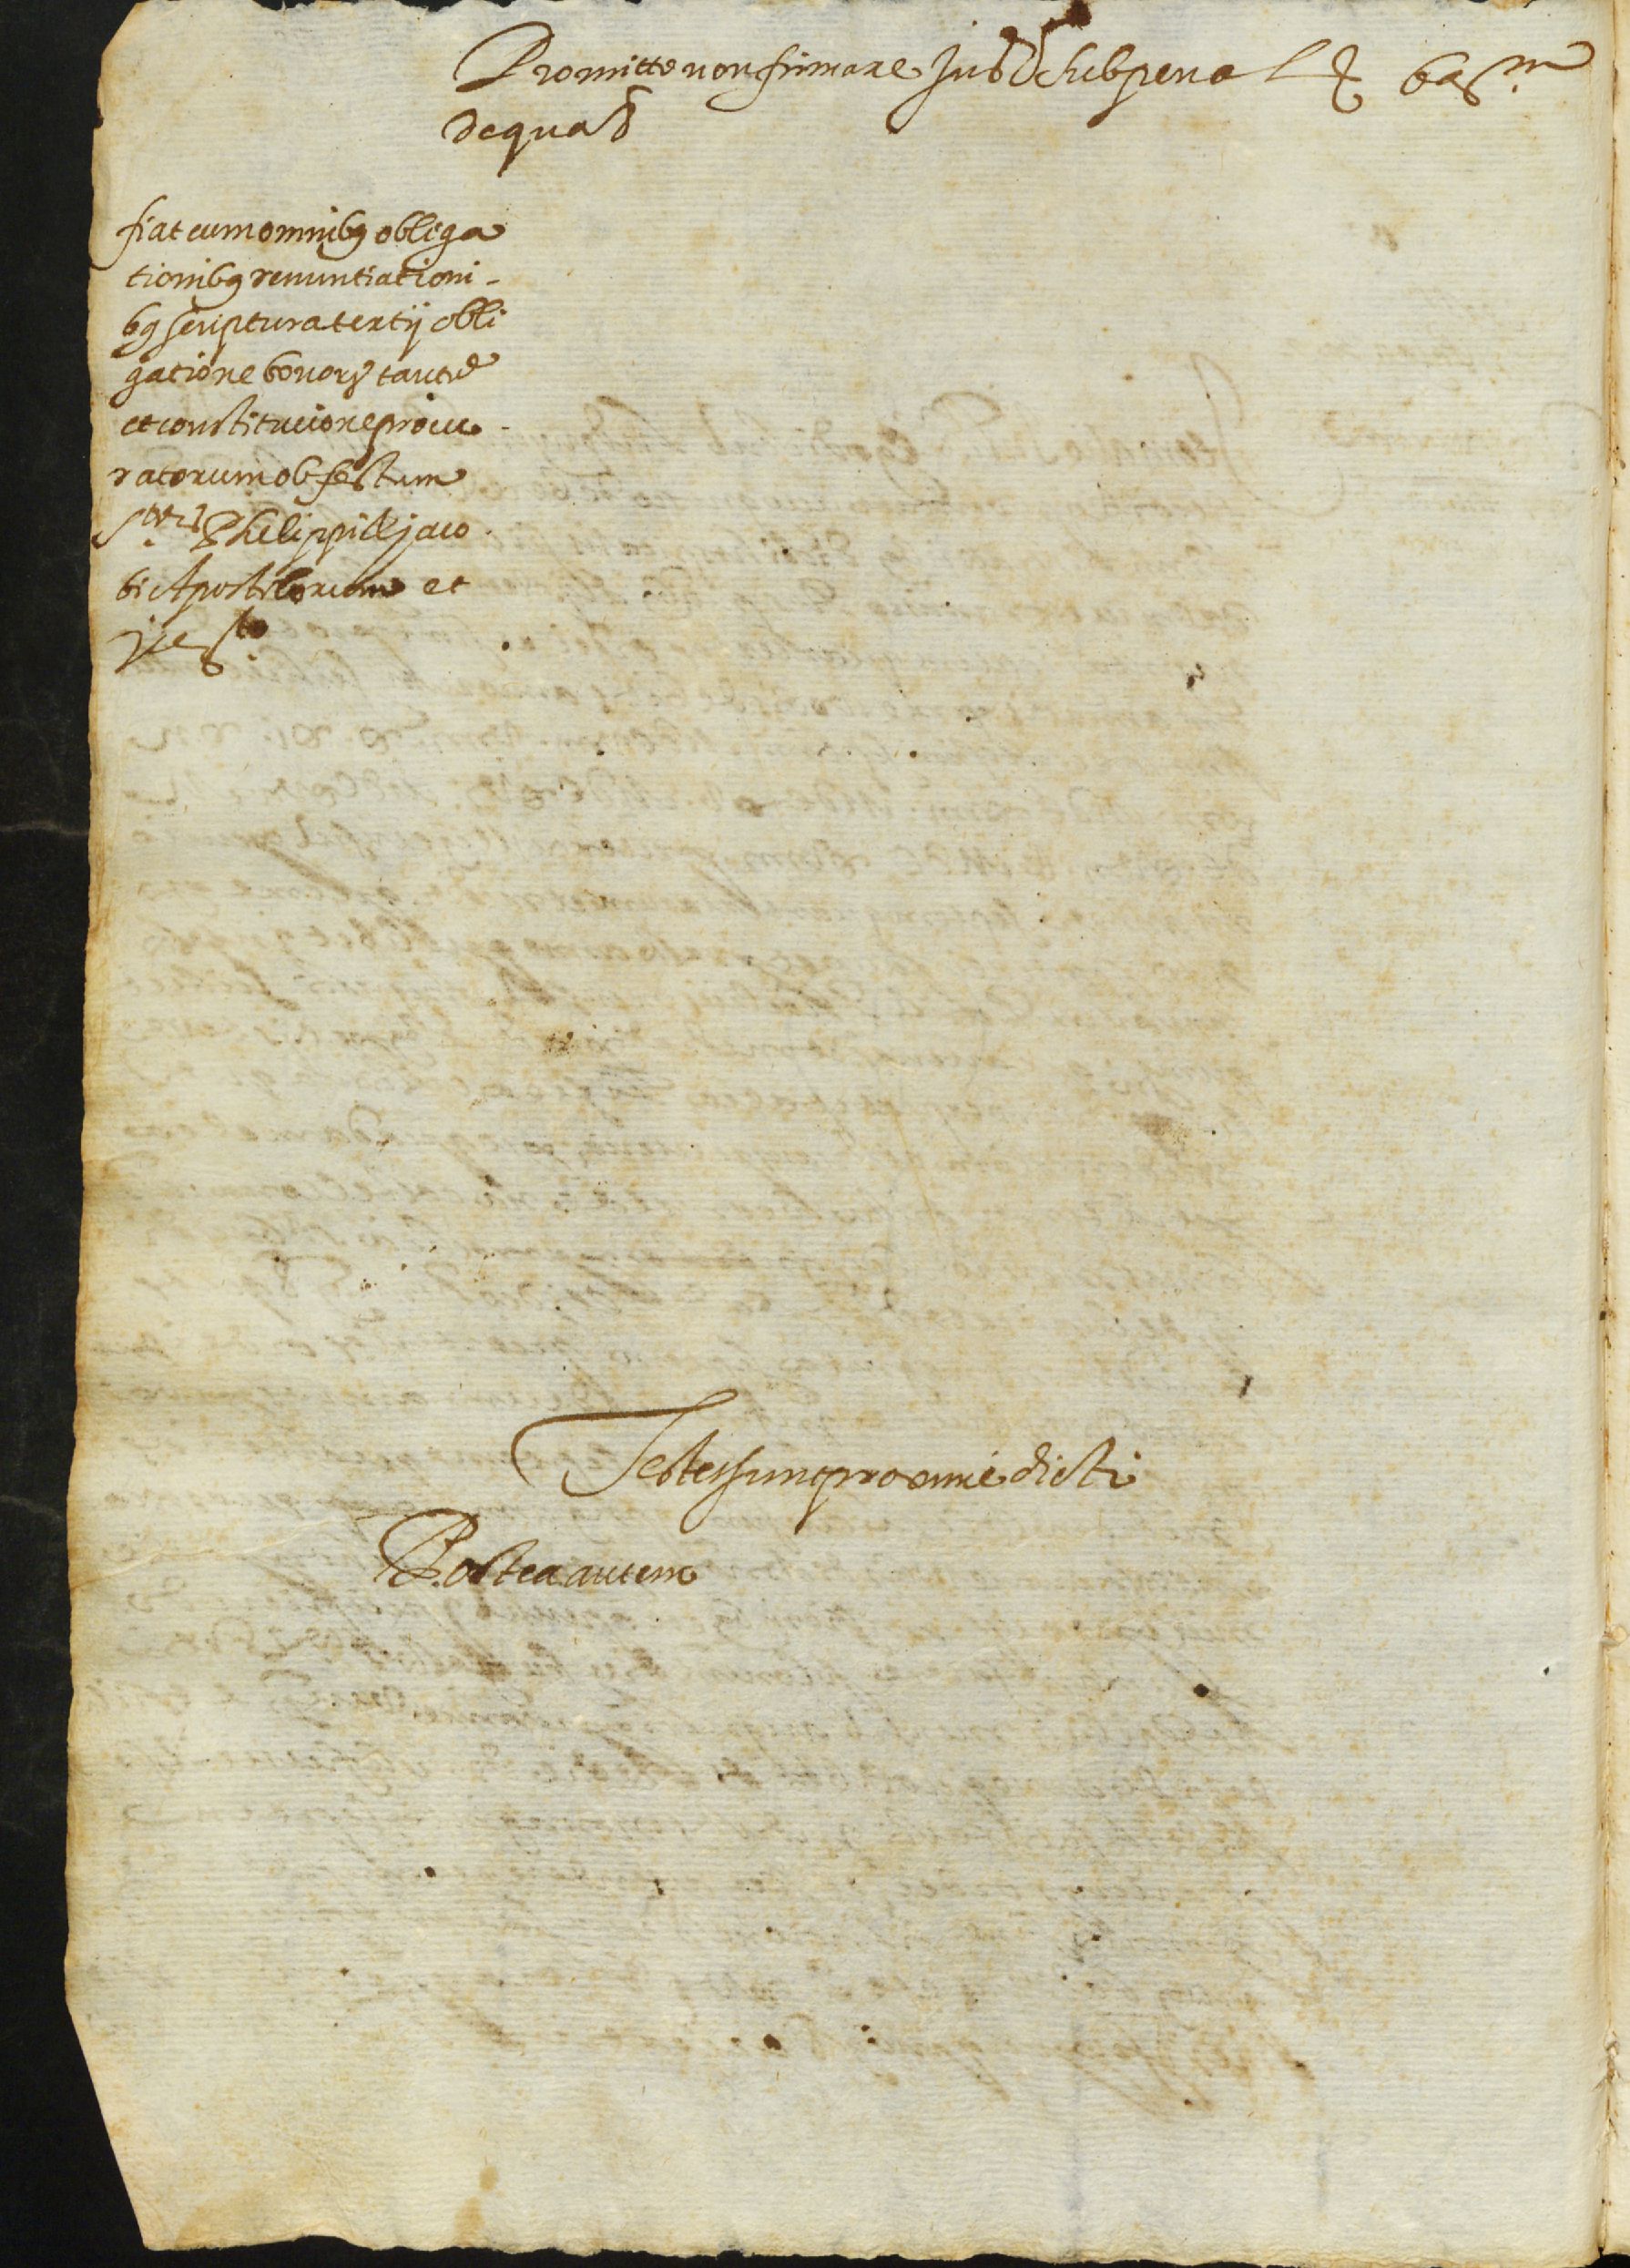 Promitto non firmare Jus d sub pena L ₰ bar.m
de qua d
fiat cum omnibȝ obliga
tionibȝ renuntiationi-
bȝ scriptura tertij obli
gatione bonorȝ tantȝ
et constitucione procu-
ratorum ob festum
Phelippi & jaco-
bi Apostolorum et
Testes sunt proxime dicti
Postea autem